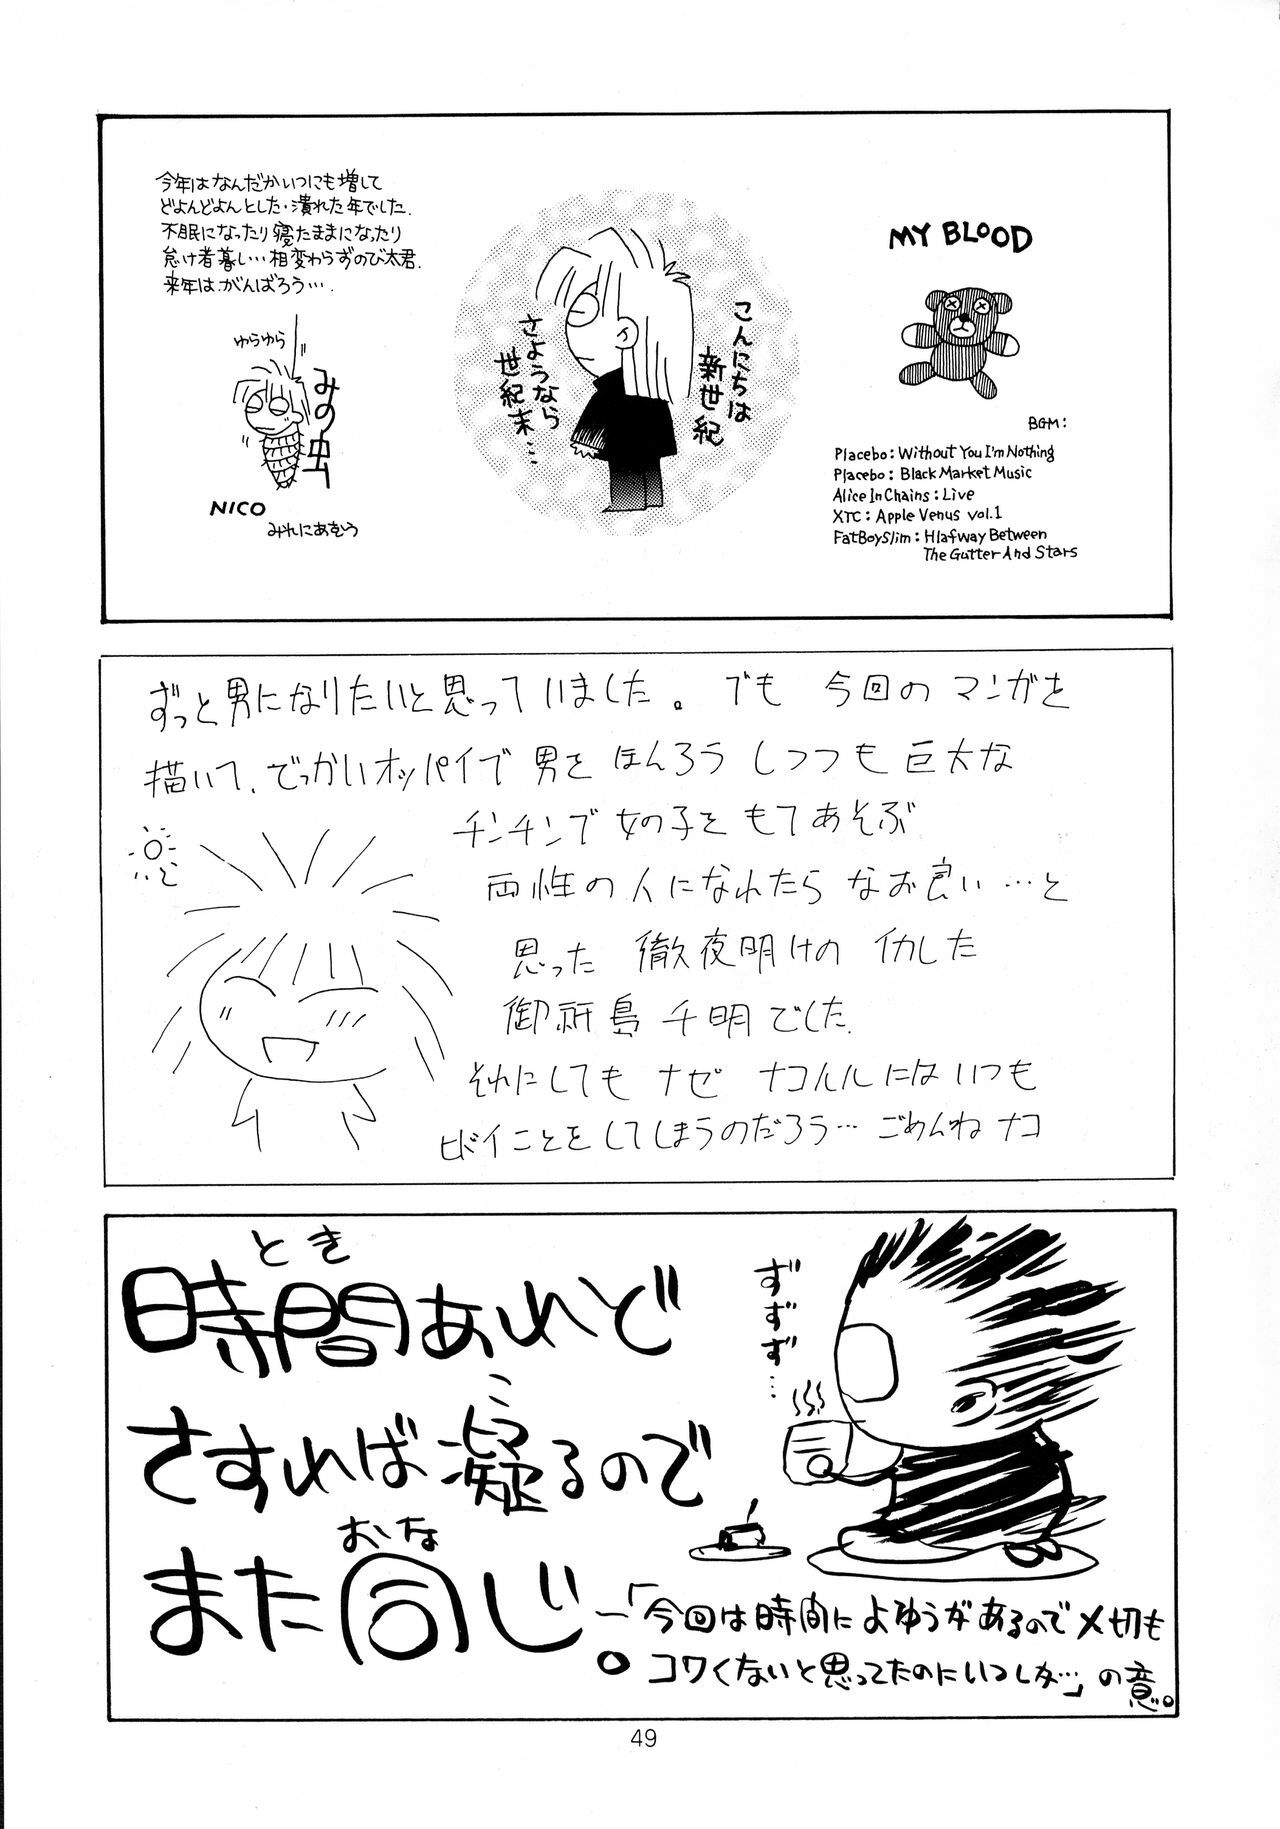 今年はなんだかいつにも増して
どよんどよんとした・潰れた年でした.
不眠になったり寝たままになったり
怠け者暮し…相変わらずのび太君.
来年は、がんばろう….
ゆらゆら
みの虫
NICO
みれにあむう
こんにちは
新世紀
さようなら
世紀末…
MY BLOOD
BGM:
Placebo: Without You I'm Nothing
Placebo: Black Market Music
Alice In Chains: Live
XTC: Apple Venus vol.1
FatBoySlim: Hlafway Between
The Gutter And Stars
ずっと男になりたいと思っていました。でも 今回のマンガを
描いて、でっかいオッパイで 男を ほんろう しつつも 巨大な
チンチンで 女の子を もてあそぶ
両性の人になれたら なお良い…と
思った 徹夜明けの イカした
御祈島 千明でした.
それにしても ナゼ ナコルルにはいつも
ヒドイことをしてしまうのだろう… ごめんね ナコ
とき
時間あれど
こ
さすれば凝るので
おな
また同じ。
ずずず…
「今回は時間によゆうがあるので〆切も
コワくないと思ってたのにいつしか…」の意。
49